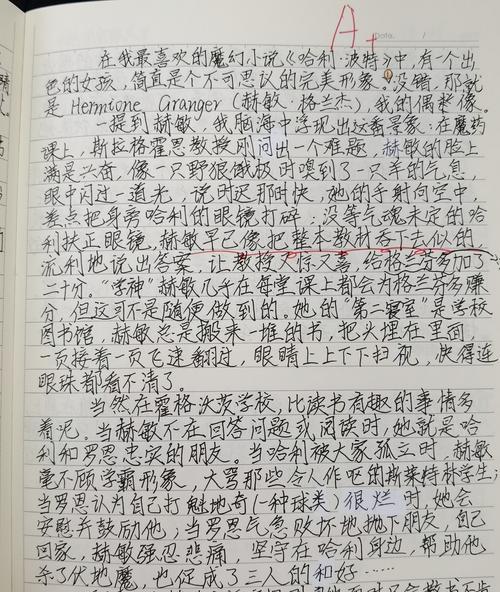 A+
Date. /
在我最喜欢的魔幻小说《哈利·波特》中,有一个出
色的女孩,简直是个不可思议的完美形象。没错,那就
是 Hermione Granger (赫敏·格兰杰),我的偶像。
一提到赫敏,我脑海中浮现出这番景象:在魔药
课上,斯拉格霍恩教授刚问出一个难题,赫敏的脸上
满是兴奋,像一只野狼饿极时嗅到了一只羊的气息,
眼中闪过一道光,说时迟那时快,她的手射向空中,
差点把身旁哈利的眼镜打碎;没等气魂未定的哈
利扶正眼镜,赫敏早已像把整本教材吞下去似的,
流利地说出答案,让教授又惊又喜,给格兰芬多加了
二十分。“学神”赫敏几乎在每堂课上都会为格兰芬多赚
分,但这可不是随便做到的。她的“第二寝室”是学校
图书馆,赫敏总是搬来一堆的书,把头埋在里面,
一页接着一页飞速翻过,眼睛上上下下扫视,快得连
眼珠都看不清了。
当然在霍格沃茨学校,比读书有趣的事情多
着呢。当赫敏不在回答问题或阅读时,她就是哈
利和罗恩忠实的朋友。当哈利被大家孤立时,赫敏
毫不顾学霸形象,大骂那些令人作呕的斯莱特林学生;
当罗恩认为自己打魁地奇(一种球类)很烂时,她会
安慰并鼓励他;当罗恩气急败坏地抛下朋友,自己
回家,赫敏强忍悲痛,坚守在哈利身边,帮助他
杀了伏地魔,也促成了三人的和好……